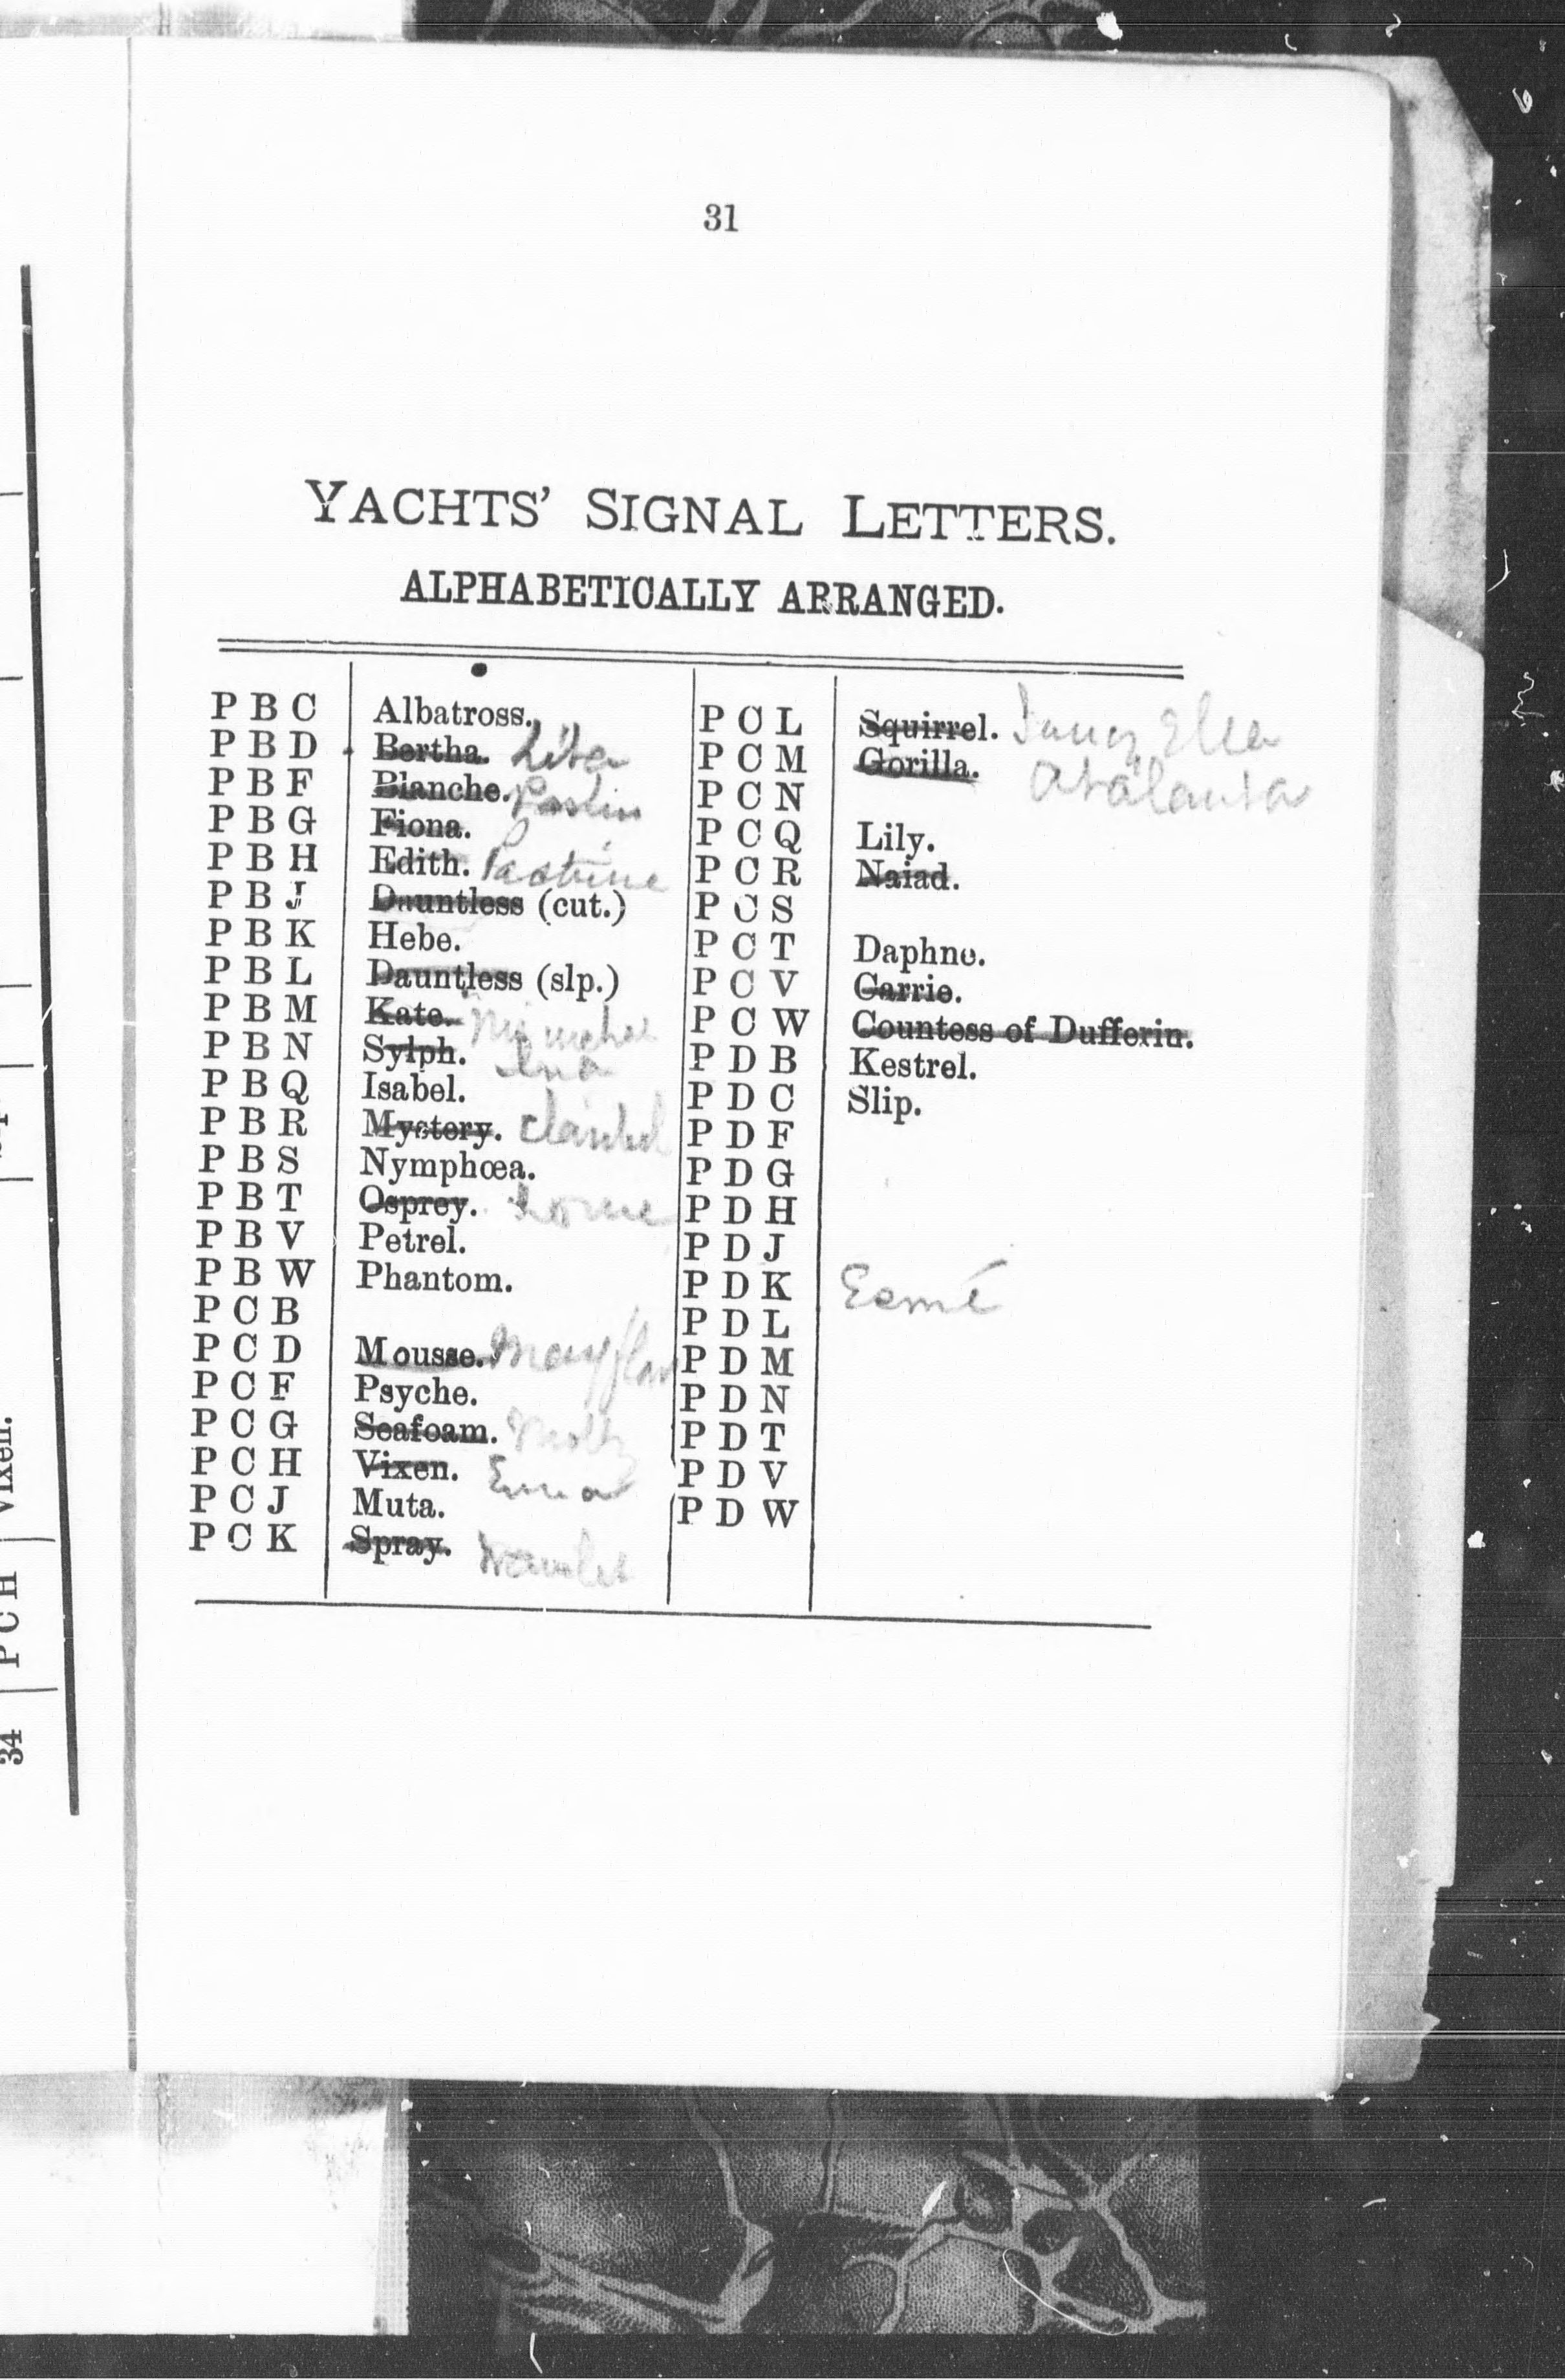 31
YACHTS' SIGNAL LETTERS.
ALPHABETICALLY ARRANGED.
P B C Albatross.
P B D Bertha.
P B F Blanche.
P B G Fiona.
P B H Edith.
P B J Dauntless (cut.)
P B K Hebe.
P B L Dauntless (slp.)
P B M Kate.
P B N Sylph. Ina
P B Q Isabel.
P B R Mystery.
P B S Nymphœa.
P B T Osprey. Lorne
P B V Petrel.
P B W Phantom.
P C B
P C D Mousse.
P C F Psyche.
P C G Seafoam.
P C H Vixen. Emma
P C J Muta.
P C K Spray.
P C L Squirrel.
P C M Gorilla. Atalanta
P C N
P C Q Lily.
P C R Naiad.
P C S
P C T Daphne.
P C V Carrie.
P C W Countess of Dufferin.
P D B Kestrel.
P D C Slip.
P D F
P D G
P D H
P D J
P D K Esmé
P D L
P D M
P D N
P D T
P D V
P D W
34 P C H Vixen.